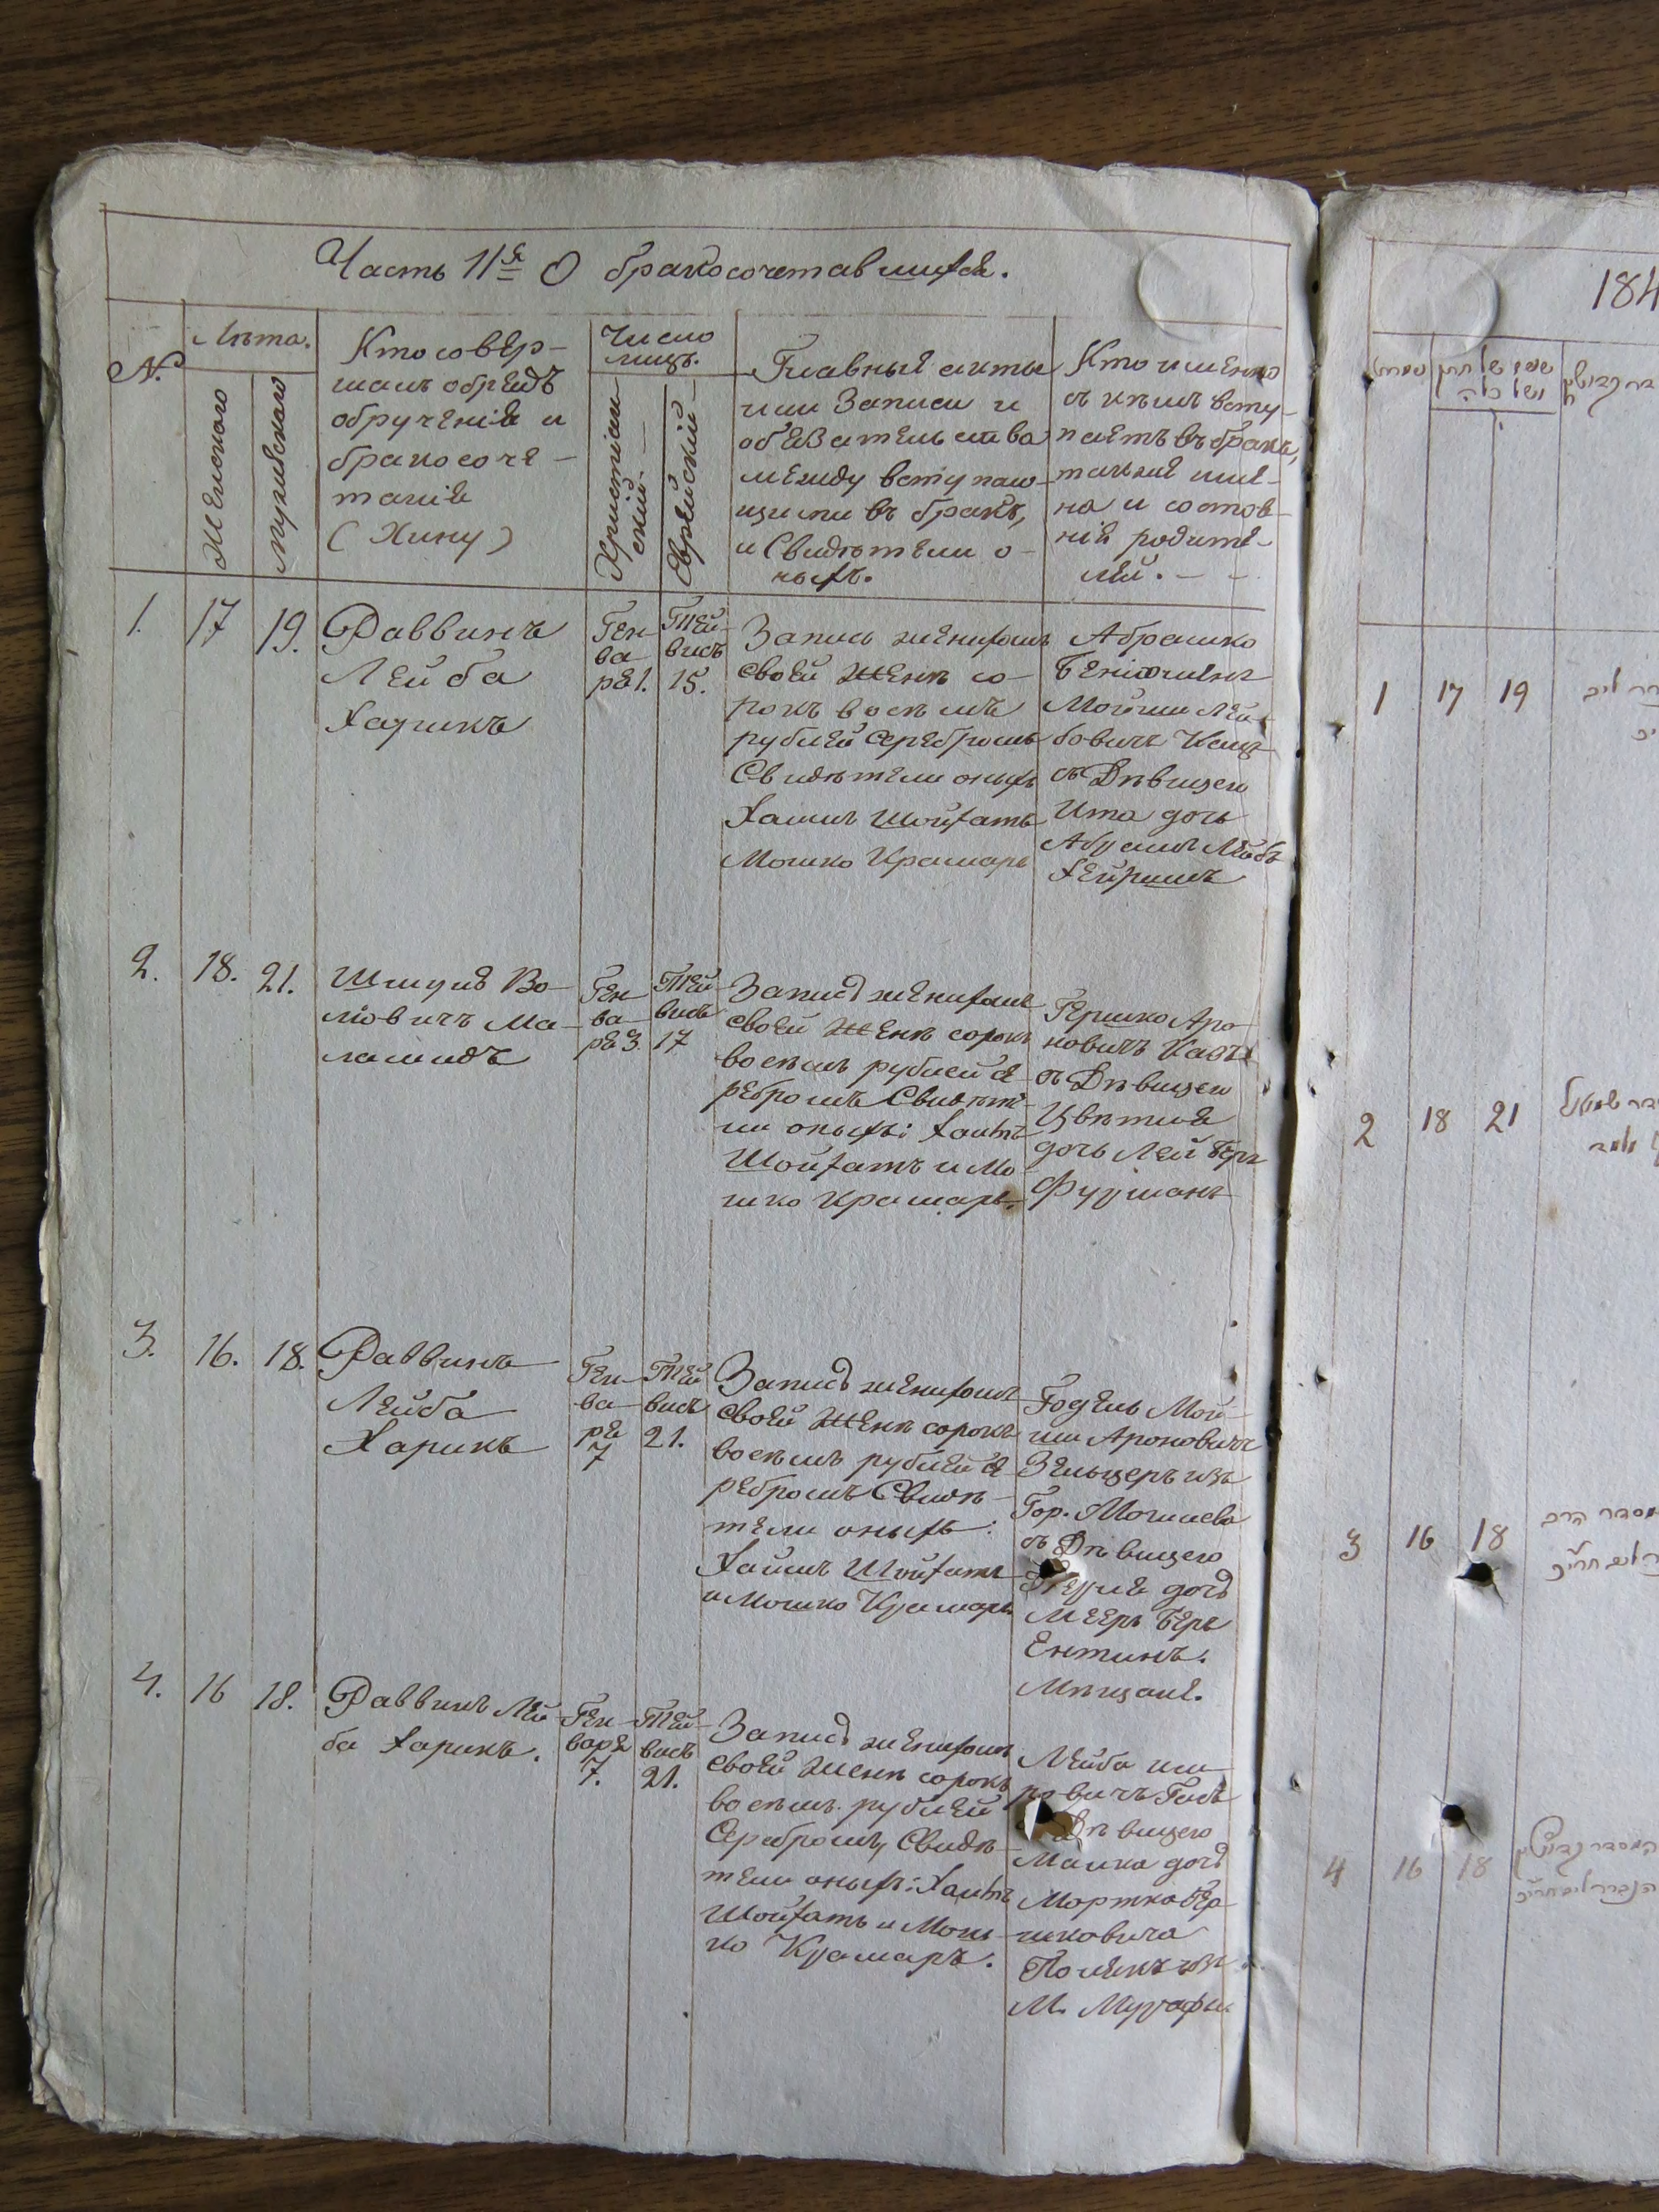 Часть IIя О бракосочетавшихся.
№.
Лѣта.
Женского
мужевского
Кто совер-
шалъ обрядъ
обрученія и
бракосоче-
танія
(Хипу)
Число
лицъ.
Христіан-
скій.
Еврейскій
Главныя акты
или Записи и
обязательства
между вступаю-
щими въ бракъ,
и Свидѣтели о-
ныхъ.
Кто именно
съ кѣмъ всту-
паетъ въ бракъ,
также име-
на и состоя-
ніе родите-
лей.
1.
17
19.
Раввинъ
Лейба
Харикъ
Ген-
ва-
ря 1.
Тей-
висъ
15.
Запись женихомъ
своей Женѣ со-
рокъ восемъ
рублей серебромъ
Свидѣтели оныхъ
Хаимъ Шойхатъ
Мошко Крамаръ
Абрашко
Беніомінъ
Мойши Лей-
бовичъ Кацъ
съ Дѣвицею
Ита дочь
Абрамъ Лейбъ
2.
18.
21.
Шмуля Во-
ліовичъ Ма-
ламидъ
Ген-
ва-
ря 3.
Тей-
висъ
17
Запись женихомъ
своей Женѣ сорокъ
восемъ рублей се-
ребромъ Свидѣте-
ли оныхъ: Хаимъ
Шойхатъ и Мо-
шко Крамаръ.
Гершко Аро-
новичъ Кацъ
съ Дѣвицею
Цвѣтля
дочь Лей Беръ
Фурманъ
3.
16.
18.
Раввинъ
Лейба
Харикъ
Ген-
ва-
ря
7
Тей
висъ
21.
Запись женихомъ
своей Женѣ сорокъ
восемъ рублей се-
ребромъ Свидѣ-
тели оныхъ:
Хаимъ Шойхатъ
и Мошко Крамаръ
Годель Мой-
ши Ароновичъ
Зельцеръ изъ
Гор. Могилева
съ Дѣвицею
дочь
Мееръ Беръ
Ентинъ.
Мѣщане.
4.
16
18.
Раввинъ Лей-
ба Харикъ.
Ген-
варя
7.
Тей-
висъ
21.
Запись женихомъ
своей Женѣ сорокъ
восемъ рублей
Серебромъ, Свидѣ-
тели оныхъ: Хаимъ
Шойхатъ и Мош-
ко Крамаръ.
Лейба
Дѣвицею
Малка дочь
Мортко Гер-
шковича
Полякъ изъ
М. Мурафы
184
1
17
19
2
18
21
3
16
18
4
16
18